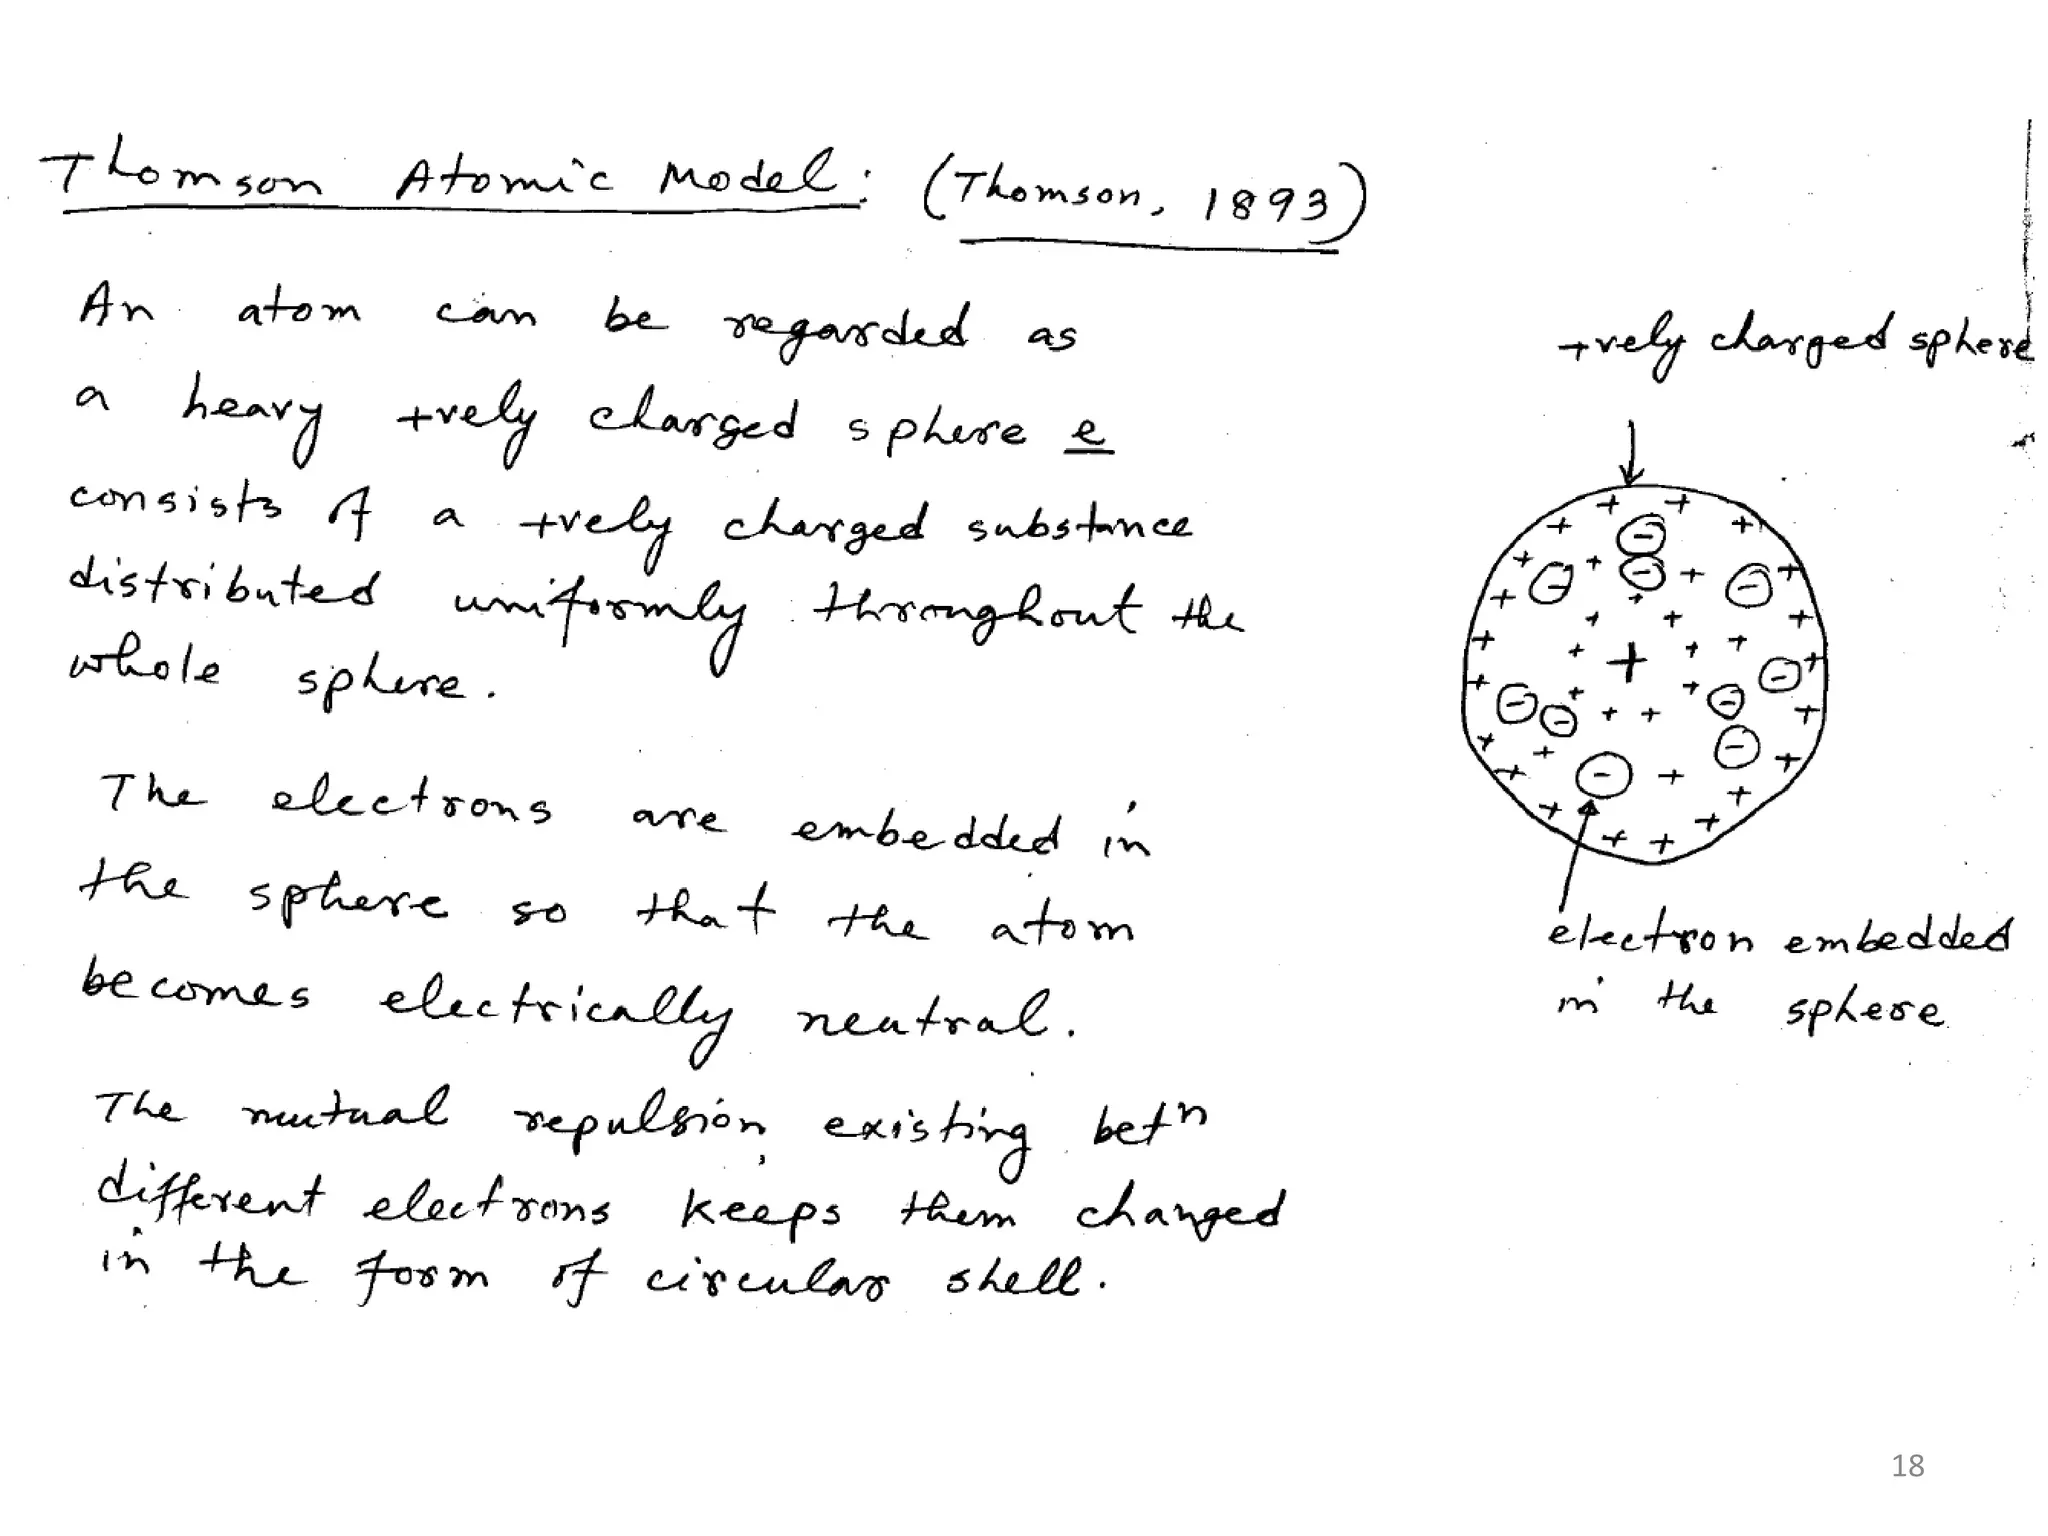 Thomson Atomic Model: (Thomson, 1893)
An atom can be regarded as
a heavy +vely charged sphere e
consists of a +vely charged substance
distributed uniformly throughout the
whole sphere.
The electrons are embedded in
the sphere so that the atom
becomes electrically neutral.
The mutual repulsion existing betn
different electrons keeps them changed
in the form of circular shell.
+vely charged sphere
electron embedded
in the sphere
18